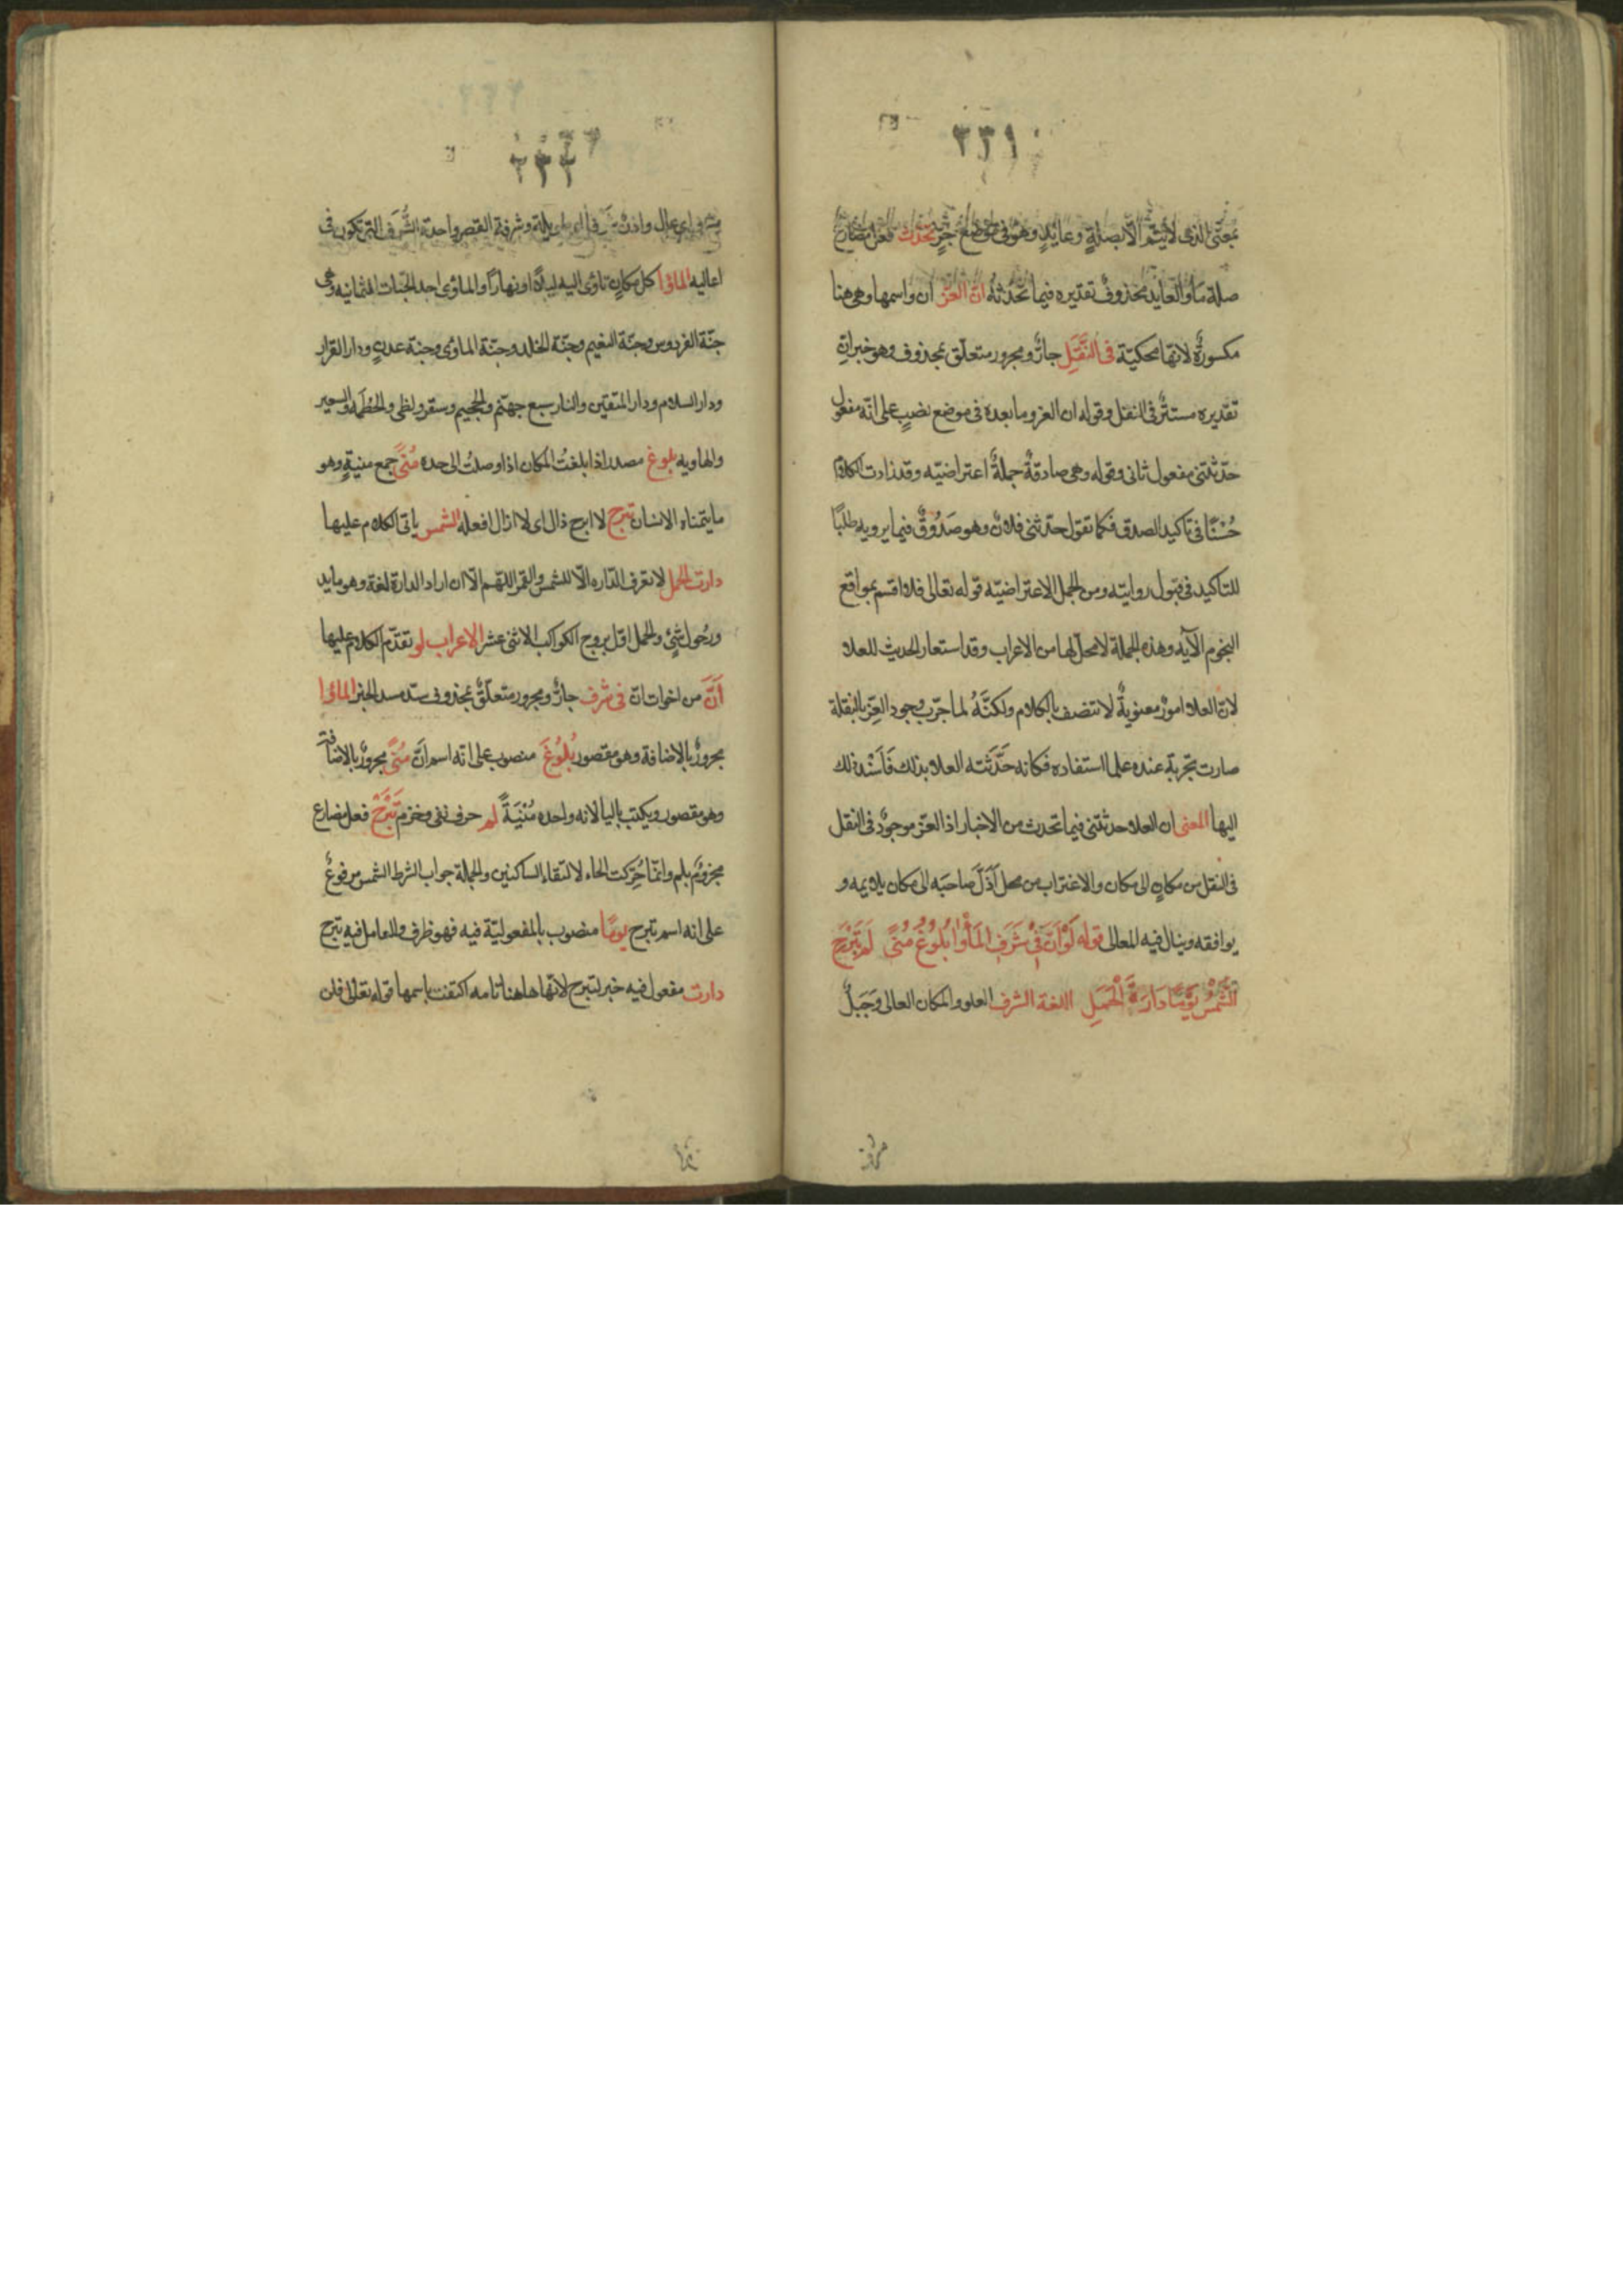 ٢٣١
بمعنى الذى لا يتم الا بصلةٍ وعايدٍ وهو فى موضع جرٍ تحدث فعل مضارع
صلة ما والعايد محذوف تقديره فيما تحدثه ان العز ان واسمها وهى هنا
مكسورة لانها محكيّة فى النُّقَلِ جارٌ ومجرور متعلّق بمحذوف وهو خبر ان
تقديره مستقر فى النقل وقوله ان العز وما بعده فى موضع نصبٍ على انّه مفعول
حدّثتنى مفعول ثانى وقوله وهى صادقةٌ جملةٌ اعتراضيّه وقد زادت الكلام
حُسْنًا فى تاكيد الصدق فكما تقول حدّثنى فلان وهو صَدُوقٌ فيما يرويه طلبًا
للتاكيد فى قبول روايتّه ومن الجمل الاعتراضيّه قوله تعالى فلا اقسم بمواقع
النجوم الآيه وهذه الجملة لا محلّ لها من الاعراب وقد استعار الحديث للعلا
لانّ العلا امورٌ معنويةٌ لا تتصف بالكلام ولكنَّهُ لما جرّب وجود العِزّ بالنقلة
صارت تجربة عنده علما استفاده فكانه حَدَّثَته العلا بذلك فَاَسْند ذلك
اليها المعنى ان العلا حدثتنى فيما تحدث من الاخبار اذ العزّ موجودٌ فى النقل
فى النقل من مكانٍ الى مكان والاغتراب من محل اَذَلَّ صاحبَه الى مكان يلايمه و
يوافقه وينال فيه المعالى قوله لَوْ اَنَّ فِىْ شَرَفِ المَأْوَا بُلُوْغَ مُنًى لَم تَبْرَحِ
الشَّمْسُ يَوْمًا دَارَةَ الْحَمَلِ اللغة الشرف العلو والمكان العالى وَجَبَلٌ
٢٣٢
اعاليه الماوٰا كل مكانٍ تاوٰى اليه ليلًا او نهارًا والماوٰى احد الجنّات الثمانيه وهى
جنّة الفردوس وجنّة النعيم وجنّة الخلد وجنّة الماوٰى وجنة عدنٍ ودار القرار
ودار السلام ودار المتقين والنار سبع جهنّم والجحيم وسقر ولظى والحُطَمَه والسعير
والهاويه بلوغ مصدر اذا بلغتُ المكان اذا وصلتُ الى حده مُنًى جمع منيةٍ وهو
ما يتمناه الانسان تبرح لا ابرح ذال اى لا ازال افعله الشمس ياتى الكلام عليها
دارت الحمل لا تعرف الدّاره الّا للشمس والقمر اللّهم الّا ان اراد الدارة لغة وهو ما يد
ورُحول شئٍ والحمل اوّل بروج الكواكب الاثنى عشر الاعراب لو تقدّم الكلام عليها
اَنَّ من اخوات انّ فى شرف جارٌ ومجرور متعلّقٌ بمحذوف سدّ مسد الخبر الماوٰا
مجرورٌ بالاضافة وهو مقصور بُلُوْغَ منصوب على انّه اسم انَّ مُنًى مجرورٌ بالاضافة
وهو مقصور ويكتب باليا لانه واحده مُنْيَةً لم حرف نفى وجزم تَبْرَحْ فعل مضارع
مجزومٌ بلم وانّما حُرّكت الحاء لالتقاء الساكنين والجملة جواب الشرط الشمس مرفوعٌ
على انه اسم تبرح يومًا منصوب بالمفعوليّة فيه فهو ظرف والعامل فيه تبرح
دارت مفعول فيه خبر لتبرح لانّها هاهنا تامه اكتفت باسمها قوله تعالى فلن